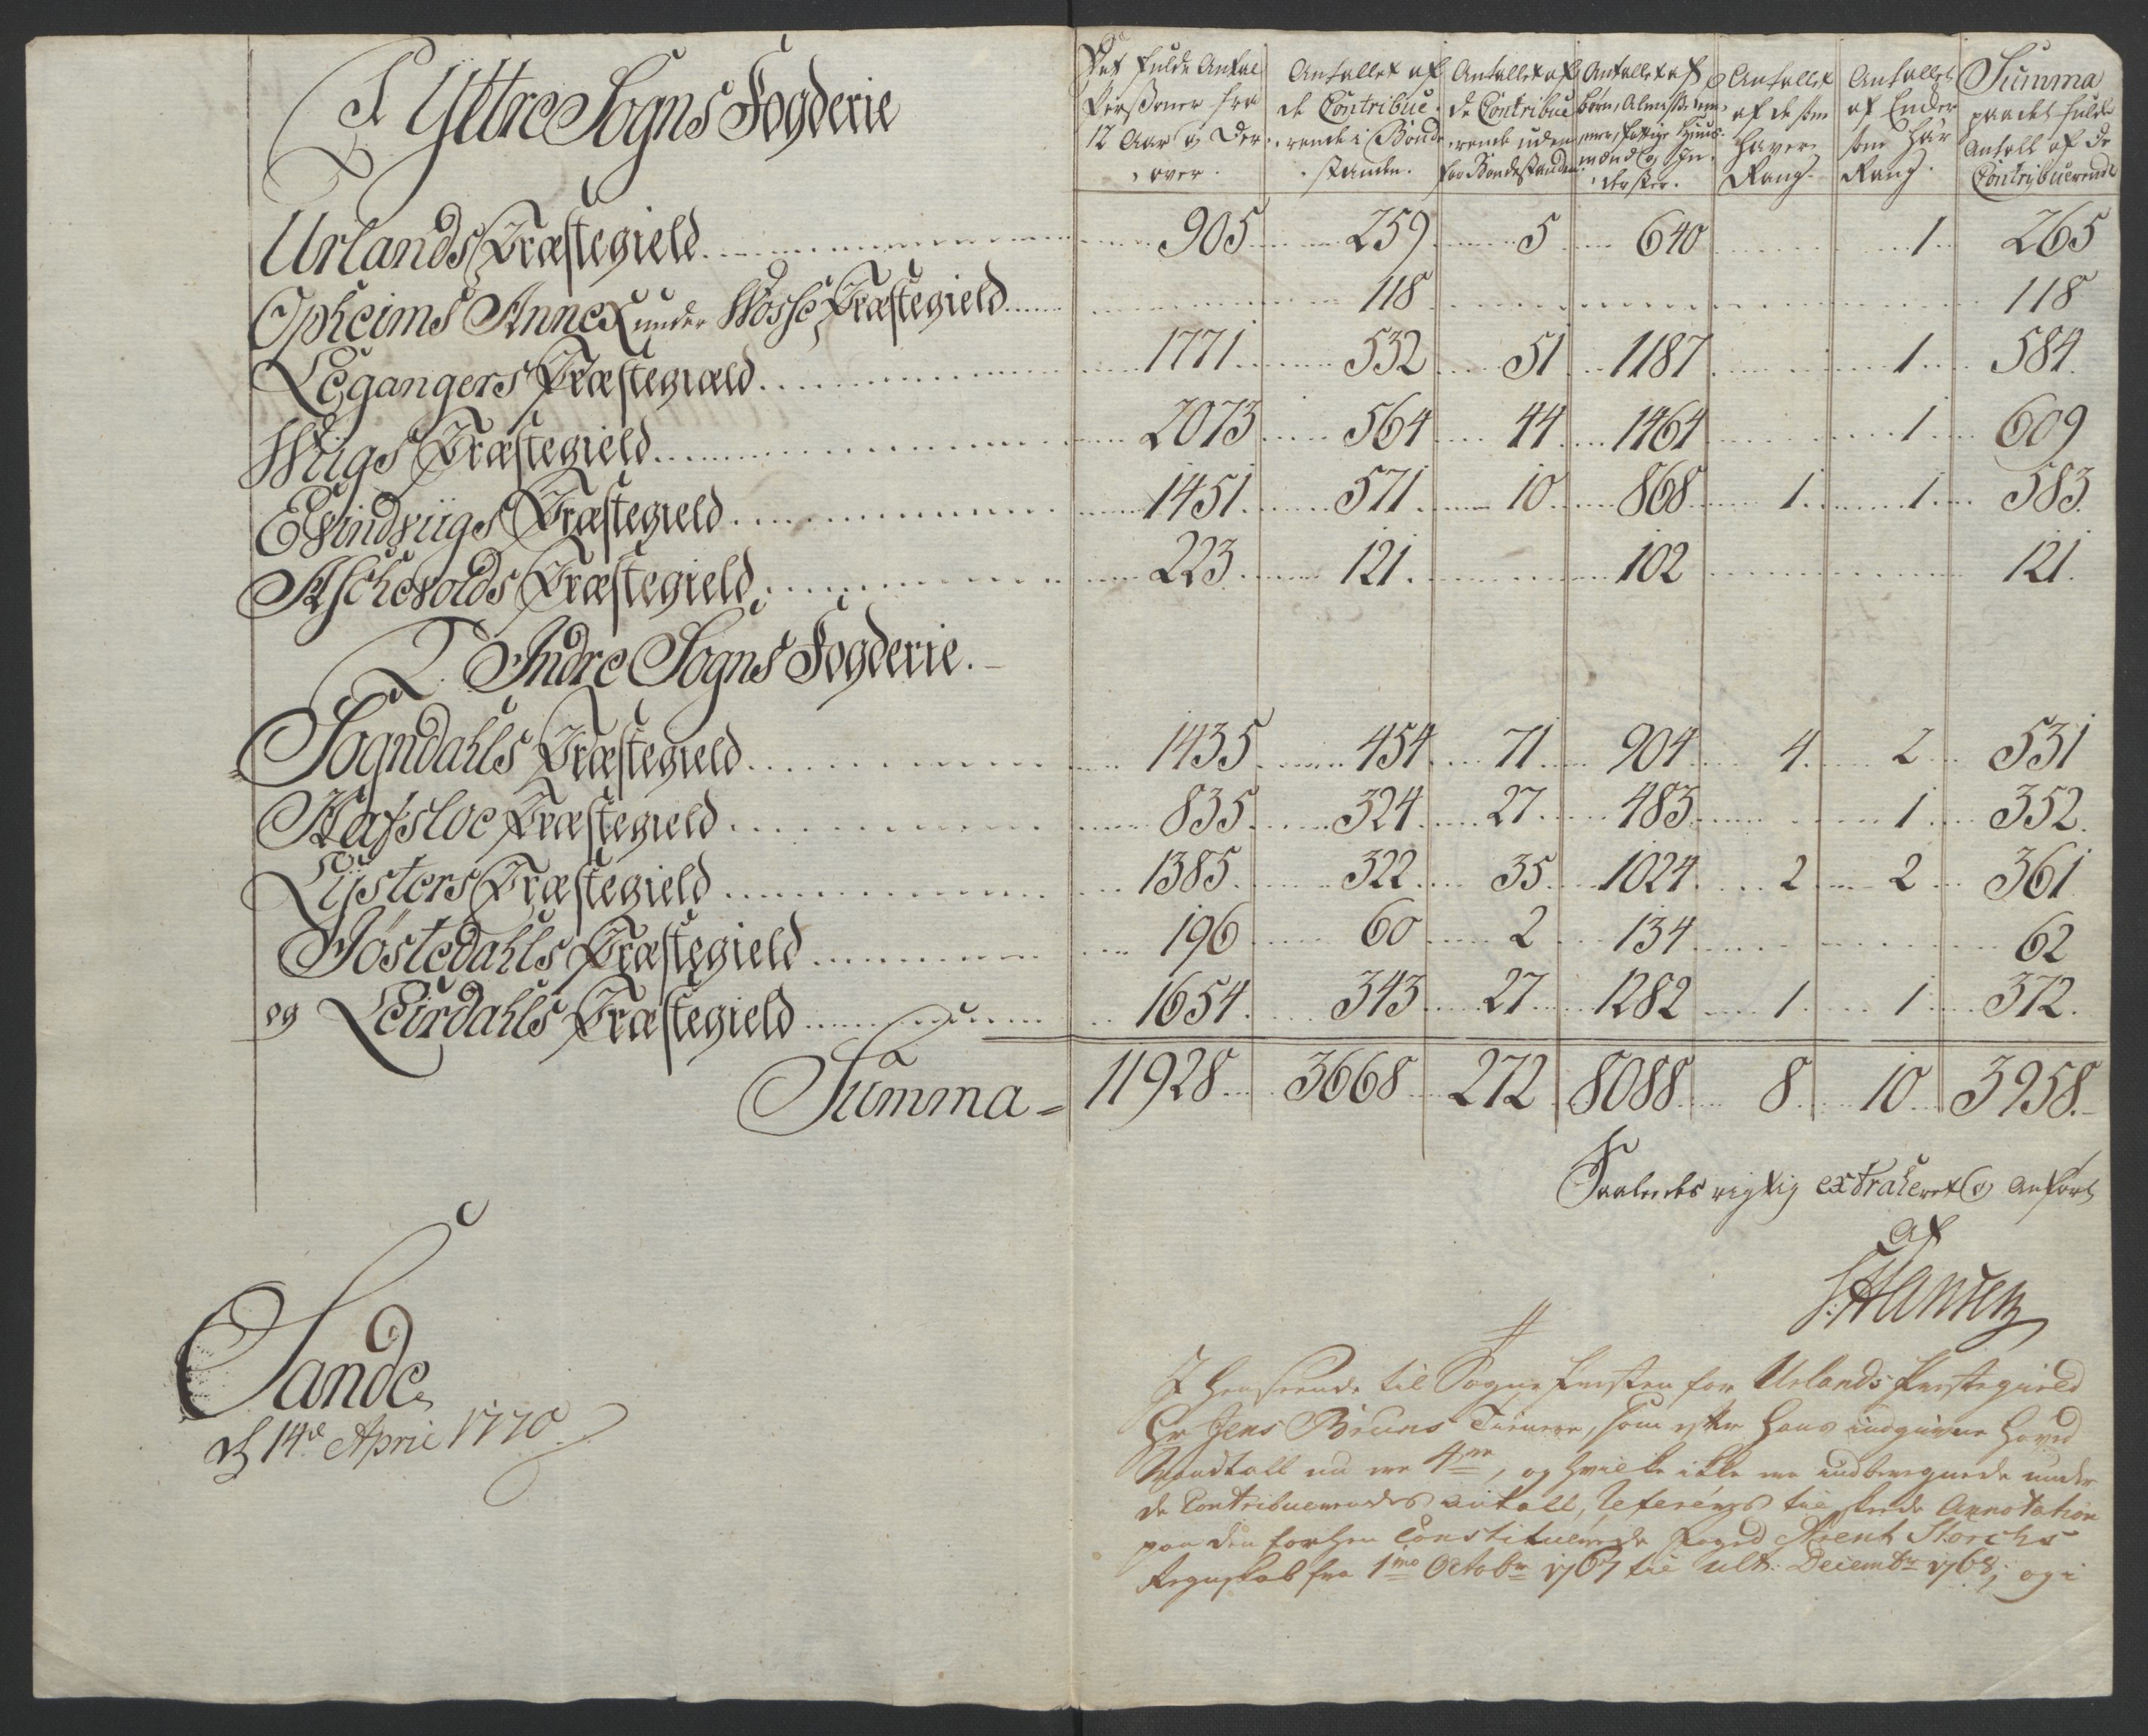 I Yttre Sogns Fogderie
Det fulde Antal Perssoner fra 12 Aar og Der-over.
Antallet af de Contribuerende i Bondestanden.
Antallet af de Contribuerende uden for Bondestanden.
Antallet af Børn, Almisse lemmer, fattige Huusmænd og Inderster.
Antallet af de som haver Rang.
Antallet af Enker som har Rang.
Summa paa det fulde Antall af de Contribuerende
Urlands Præstegield 905 259 5 640 1 265
Opheims Annex under Wosse Præstegield 118 118
Leganger Præstegiæld 1771 532 51 1187 1 584
Wiigs Præstegield 2073 564 44 1464 1 609
Evindviigs Præstegield 1451 571 10 868 1 1 583
Aschevolds Præstegield 223 121 102 121
I Indre Sogns Fogderie.
Sogndahls Præstegield 1435 454 71 904 4 2 531
Hafsloe Præstegield 835 324 27 483 1 352
Lysters Præstegield 1385 322 35 1024 2 2 361
Jøstedahls Præstegield 196 60 2 134 62
og Leirdahls Præstegield 1654 343 27 1282 1 1 372
Summa = 11928 3668 272 8088 8 10 3958.
Saaledes rigtig extraheret og anført
af
Hansen
Sande
d 14de April 1770
I henseende til Sogne Præsten for Urlands Præstegield
Hr Jens Bruns Tienere, som efter hans indgivne Hoved
Mandtall nu ere 4re, og hvilke ikke ere indberegnede under
de Contribuerendes antall, refereres til skeede Annotation
paa den forhen Constituerede Foged Arent Storchs
Regnskab fra 1mo Octobr 1767 til ult: Decembr 1768, og i